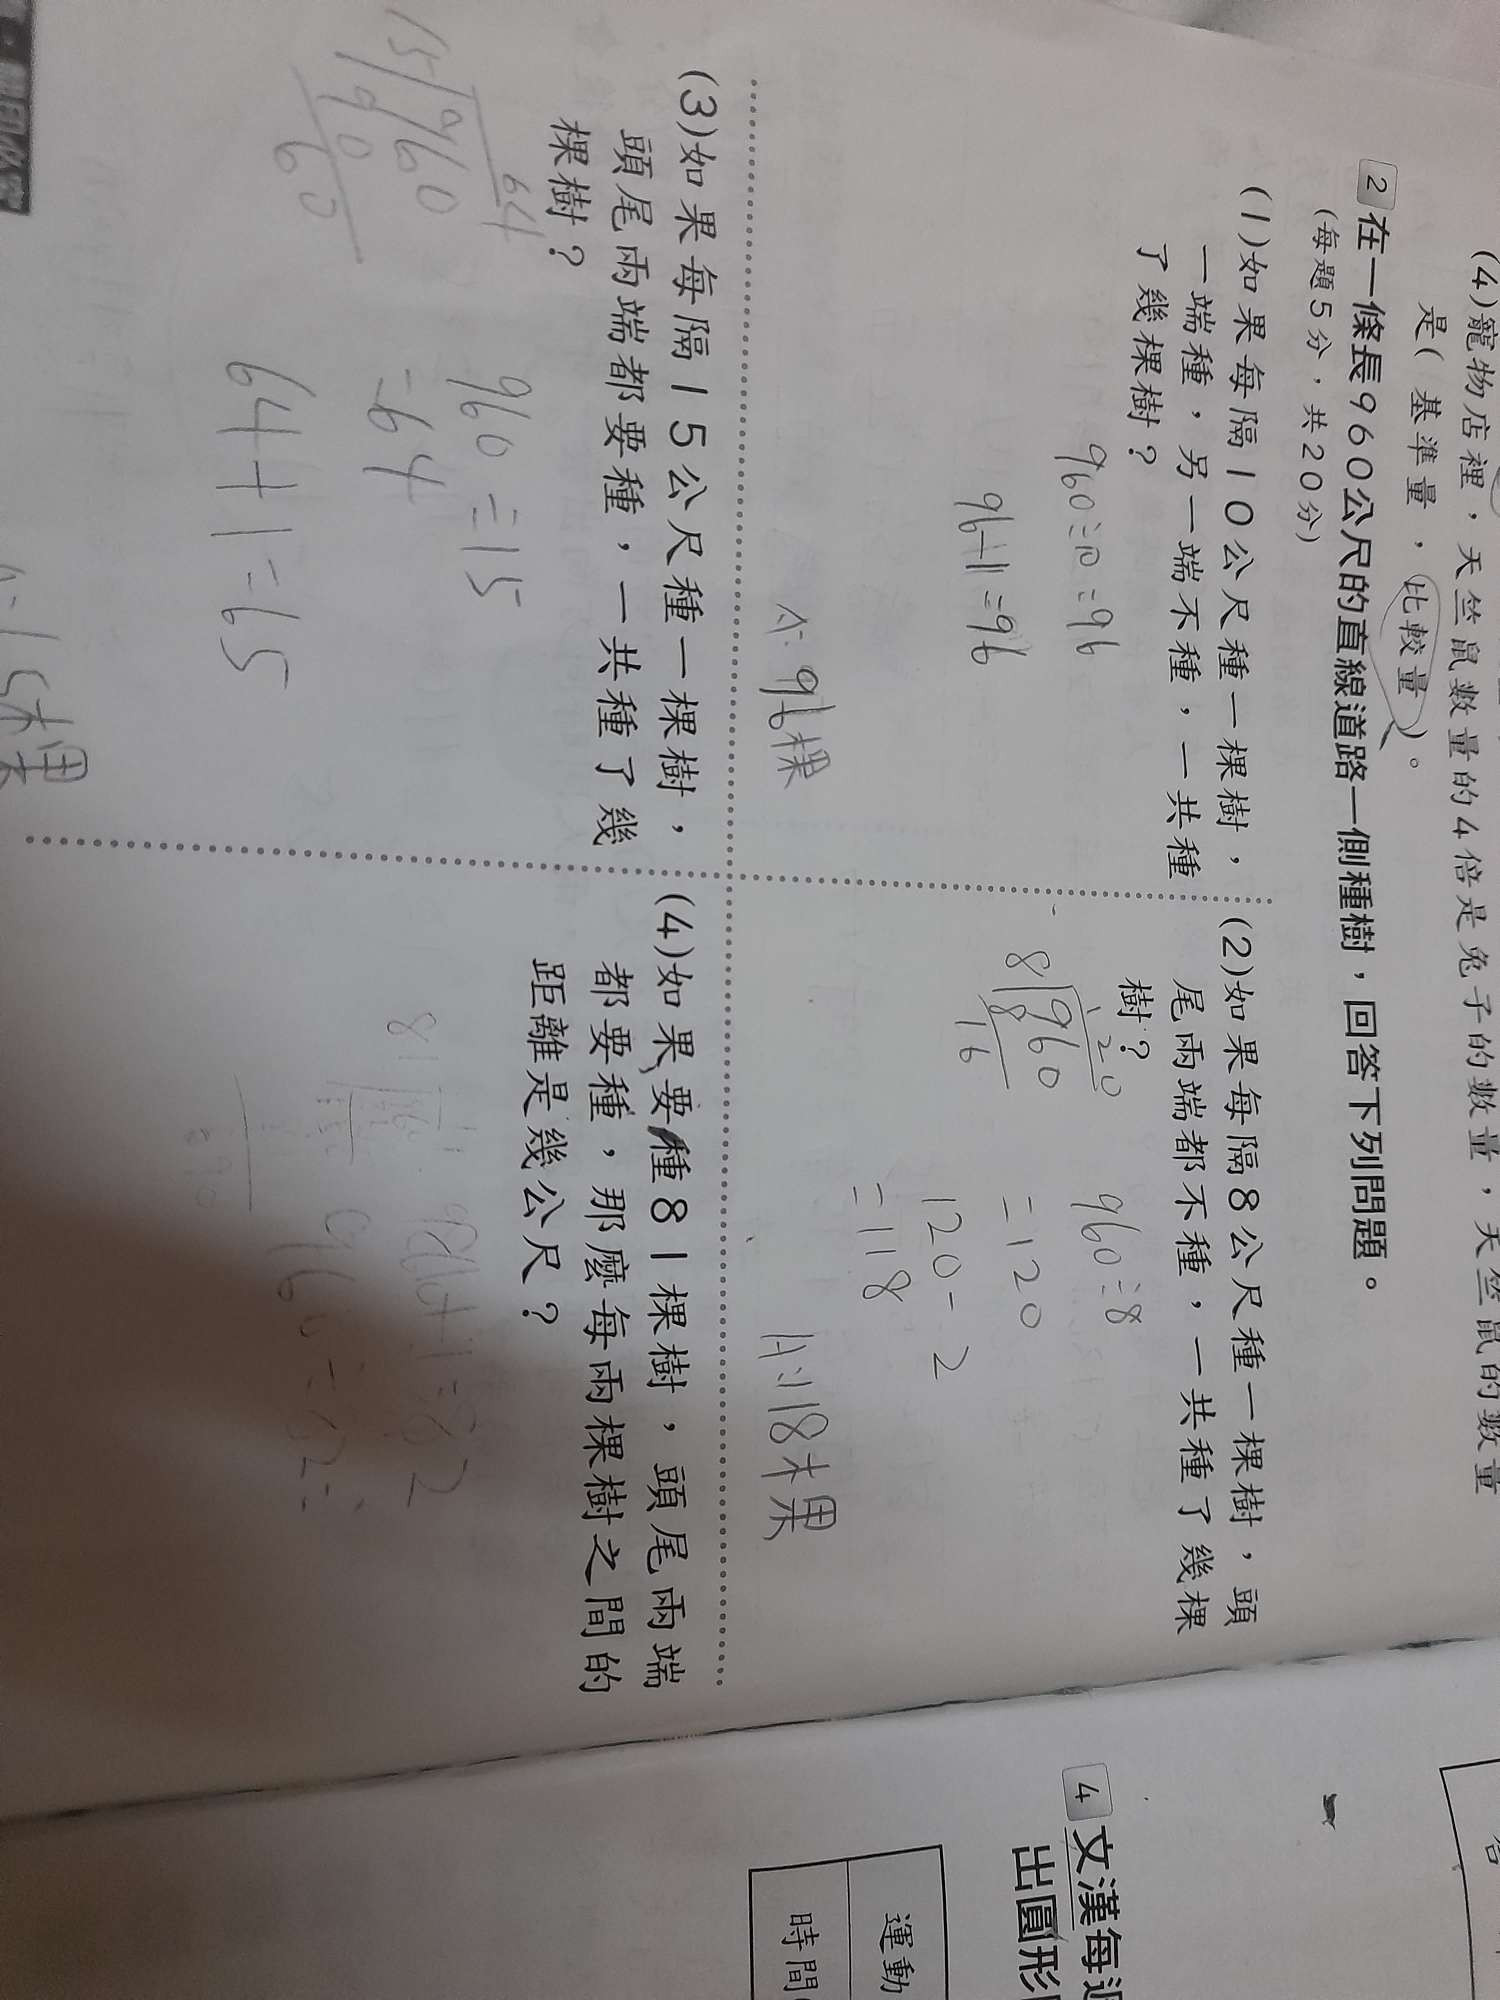 (4)寵物店裡，天竺鼠數量的4倍是兔子的數量，天竺鼠的數量
是(基準量，比較量)。
2 在一條長960公尺的直線道路一側種樹，回答下列問題。
(每題5分，共20分)
(1)如果每隔10公尺種一棵樹，
一端種，另一端不種，一共種
了幾棵樹？
960÷10=96
A:96棵
(2)如果每隔8公尺種一棵樹，頭
尾兩端都不種，一共種了幾棵
樹？
120
8 960
8
16
960÷8
=120
120-2
=118
A:118棵
(3)如果每隔15公尺種一棵樹，
頭尾兩端都要種，一共種了幾
棵樹？
64
15 960
90
60
960÷15
=64
64+1=65
(4)如果要種81棵樹，頭尾兩端
都要種，那麼每兩棵樹之間的
距離是幾公尺？
4 文漢每週
出圓形
運動
時間